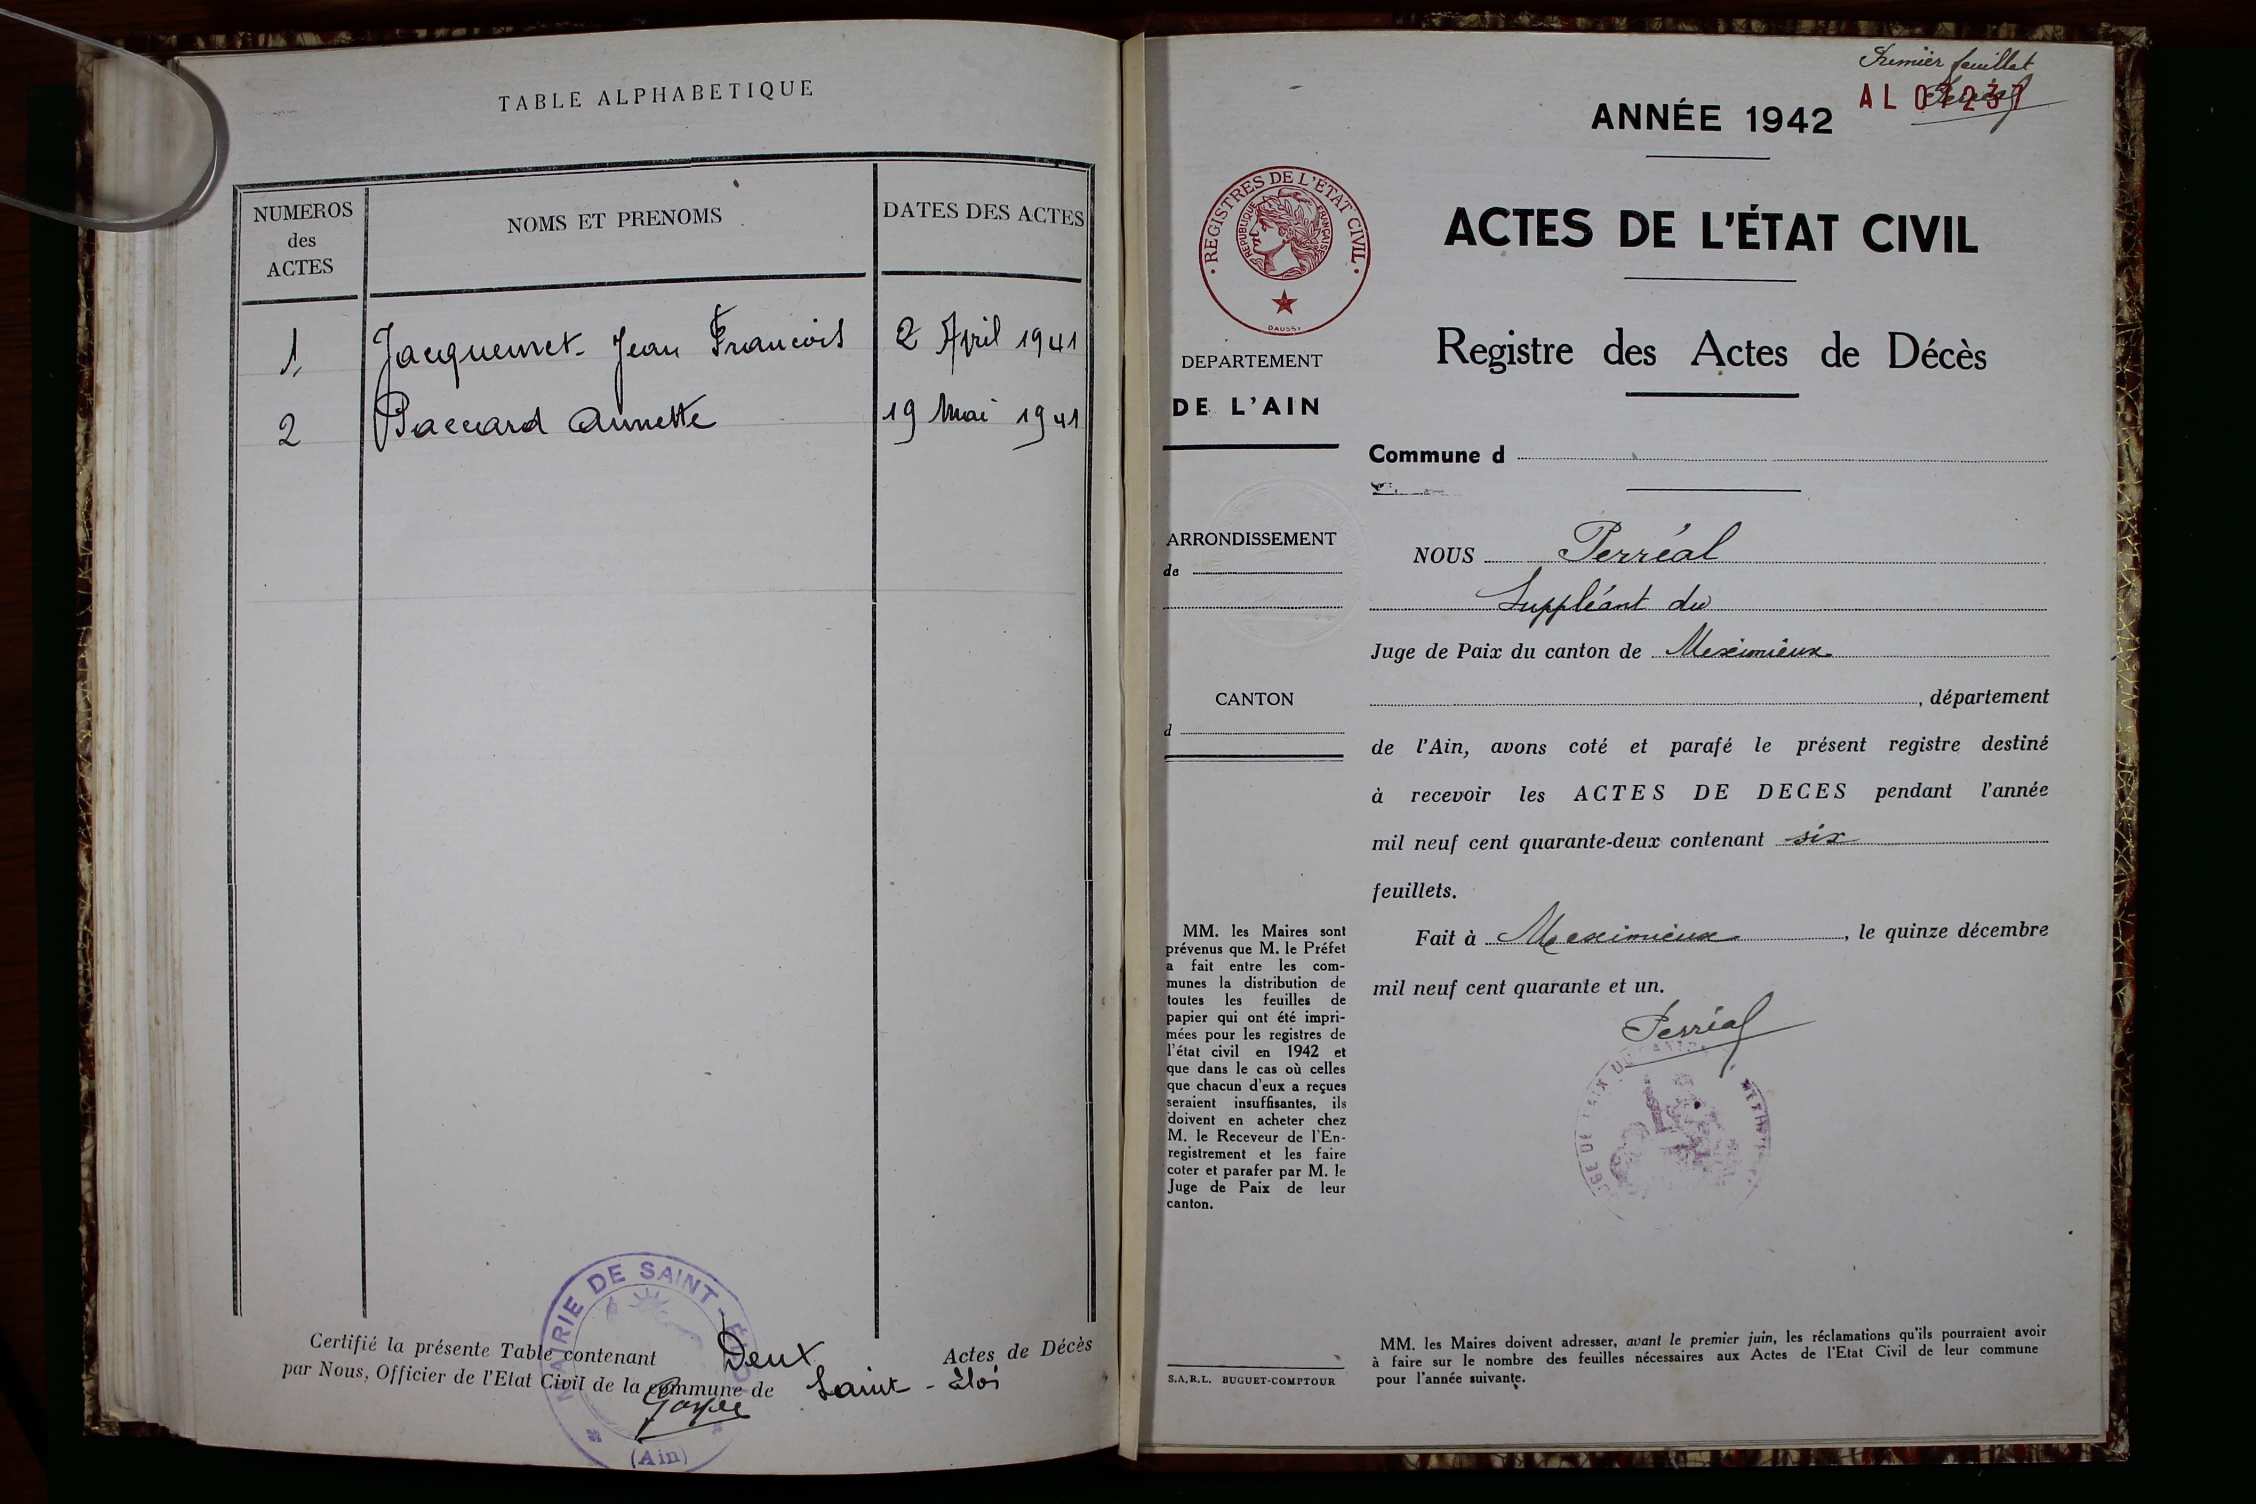 TABLE ALPHABETIQUE
NUMEROS
des
ACTES
NOMS ET PRENOMS
DATES DES ACTES
1, Jacquemet Jean François 2 Avril 1941
2 Baccard Annette 19 Mai 1941
Certifié la présente Table contenant Deux Actes de Décès
par Nous, Officier de l'Etat Civil de la commune de Saint-Eloi
MAIRIE DE SAINT-ÉLOI
(Ain)
Premier feuillet
Perréal
AL
ANNÉE 1942
REGISTRES DE L'ÉTAT CIVIL
RÉPUBLIQUE FRANÇAISE
DAUSSY
ACTES DE L'ÉTAT CIVIL
Registre des Actes de Décès
DEPARTEMENT
DE L'AIN
ARRONDISSEMENT
de
CANTON
d
MM. les Maires sont
prévenus que M. le Préfet
a fait entre les com-
munes la distribution de
toutes les feuilles de
papier qui ont été impri-
mées pour les registres de
l'état civil en 1942 et
que dans le cas où celles
que chacun d'eux a reçues
seraient insuffisantes, ils
doivent en acheter chez
M. le Receveur de l'En-
registrement et les faire
coter et parafer par M. le
Juge de Paix de leur
canton.
S.A.R.L. BUGUET-COMPTOUR
Commune d
NOUS Perréal
Suppléant du
Juge de Paix du canton de Meximieux
, département
de l'Ain, avons coté et parafé le présent registre destiné
à recevoir les ACTES DE DECES pendant l'année
mil neuf cent quarante-deux contenant six
feuillets.
Fait à Meximieux, le quinze décembre
mil neuf cent quarante et un.
Perréal
MM. les Maires doivent adresser, avant le premier juin, les réclamations qu'ils pourraient avoir
à faire sur le nombre des feuilles nécessaires aux Actes de l'Etat Civil de leur commune
pour l'année suivante.